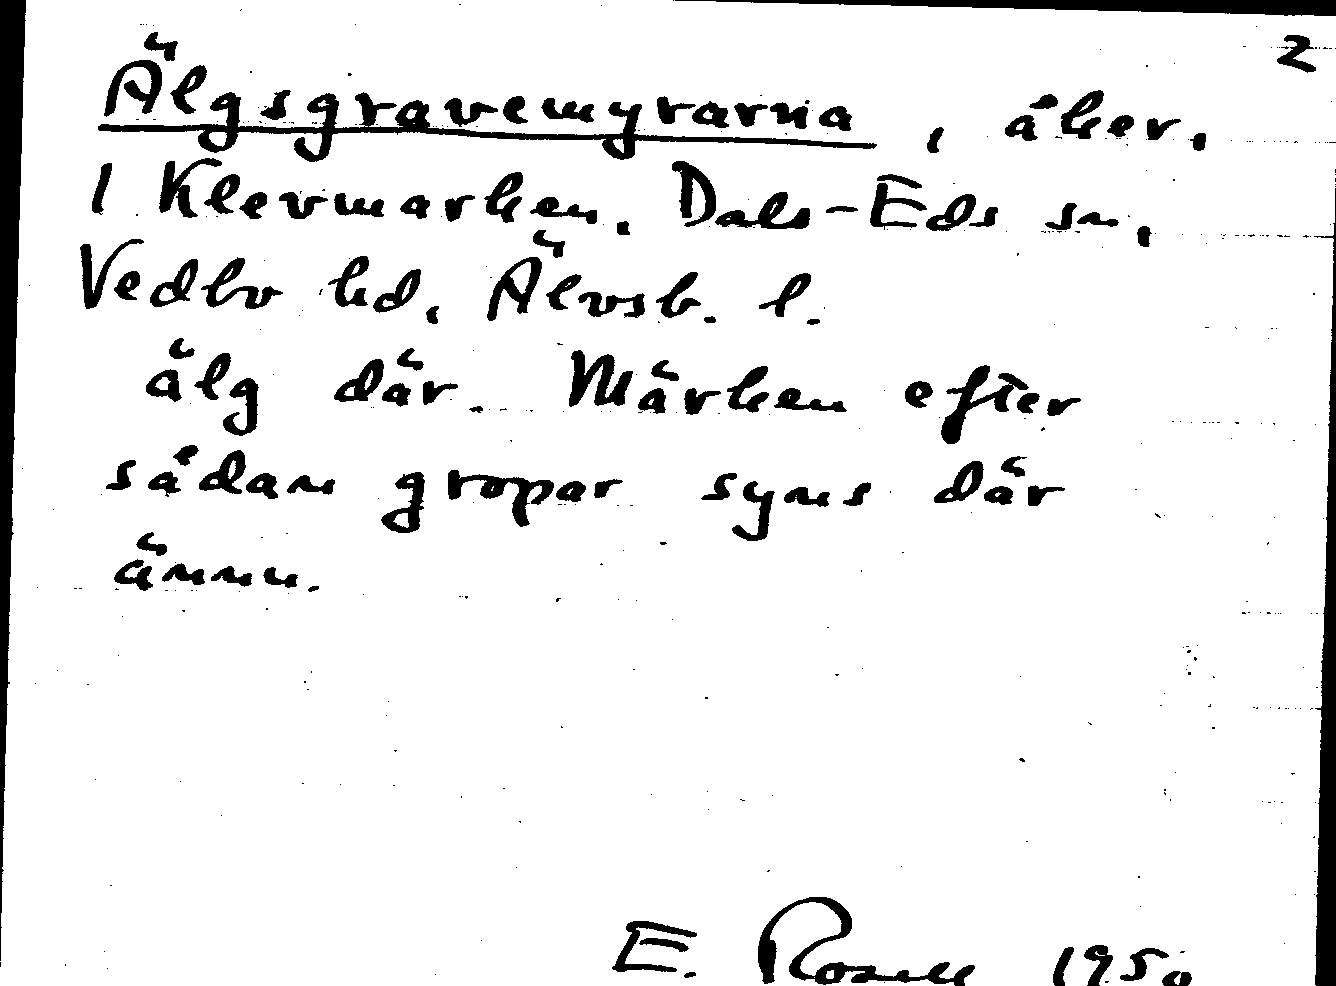 2
Älgsgravemyrarna, åker.
I Klevmarken. Dals-Eds sn,
Vedbo hd, Älvsb. l.
älg där. Märken efter
sådan gropar syns där
ännu.
E. Rosell 1950